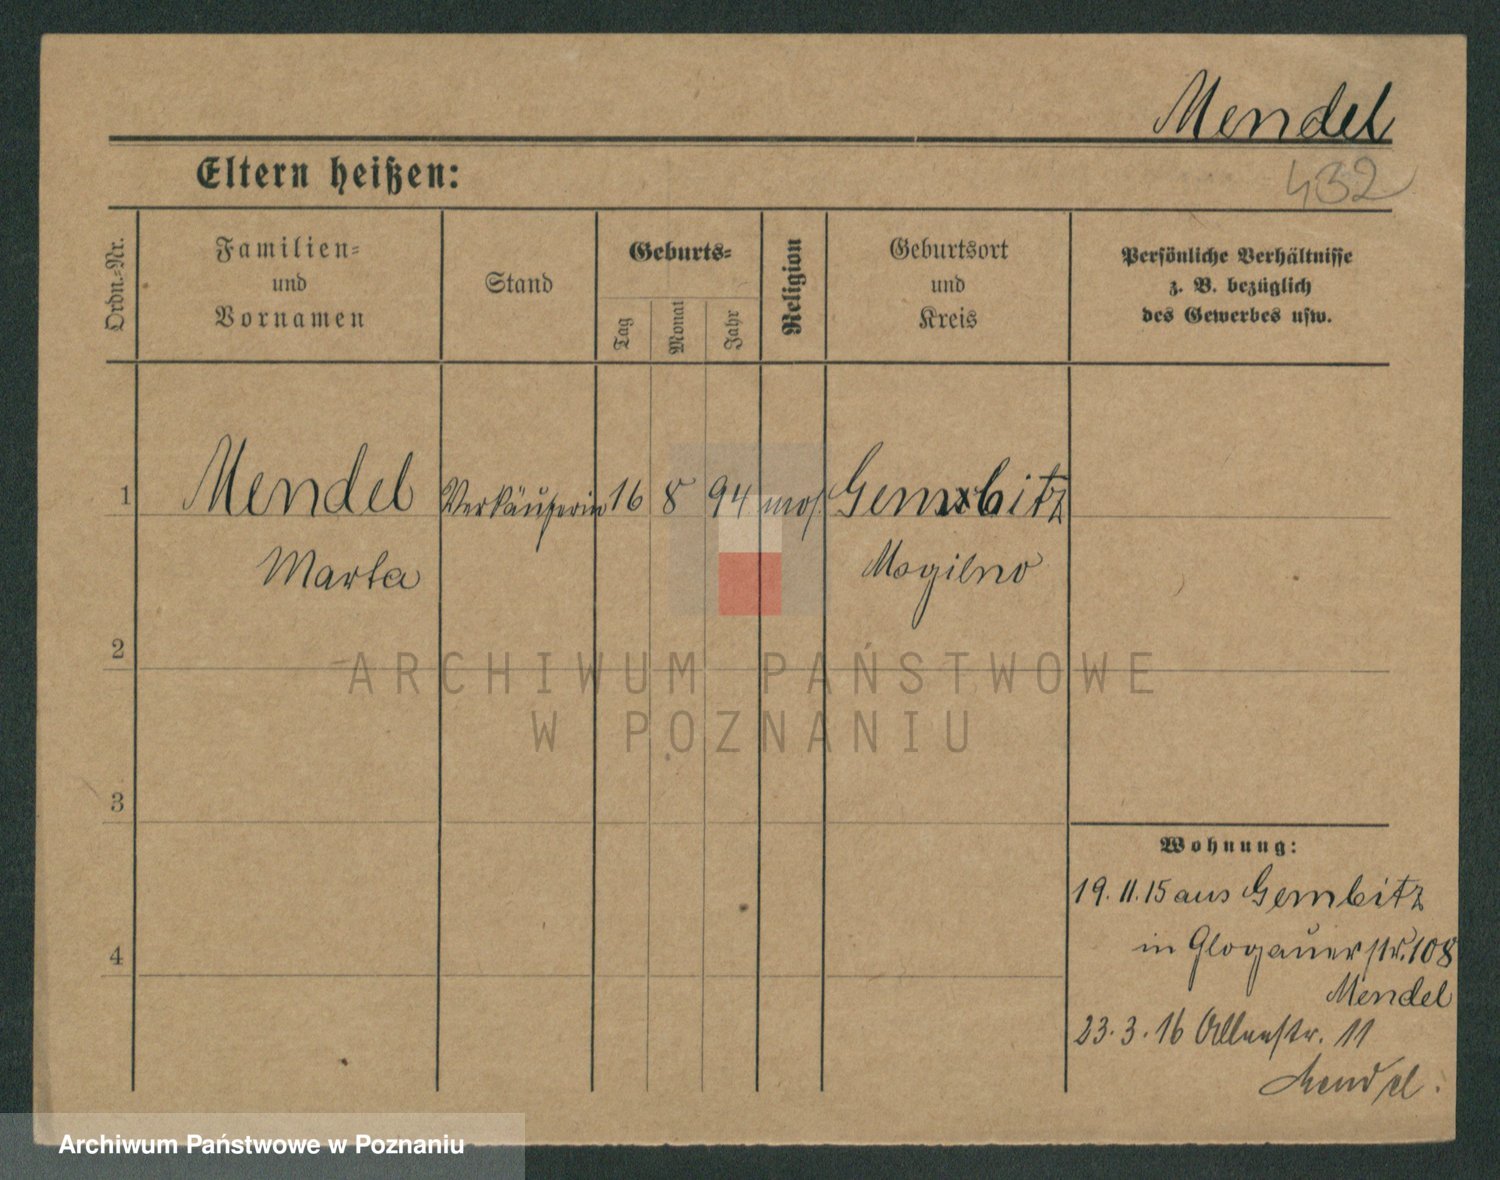 Mendel
432
Eltern heißen:
Ordn.-Nr.
Familien-
und
Vornamen
Stand
Geburts-
Tag
Monat
Jahr
Religion
Geburtsort
und
Kreis
Persönliche Verhältnisse
z. B. bezüglich
des Gewerbes usw.
1 Mendel Verkäuferin 16 8 94 mos. Gembitz
Marta Mogilno
2
ARCHIWUM PAŃSTWOWE
W POZNANIU
3
Wohnung:
19.11.15 aus Gembitz
in Glogauerstr. 108
Mendel
4
23.3.16 Allenstr. 11
Mendel.
Archiwum Państwowe w Poznaniu